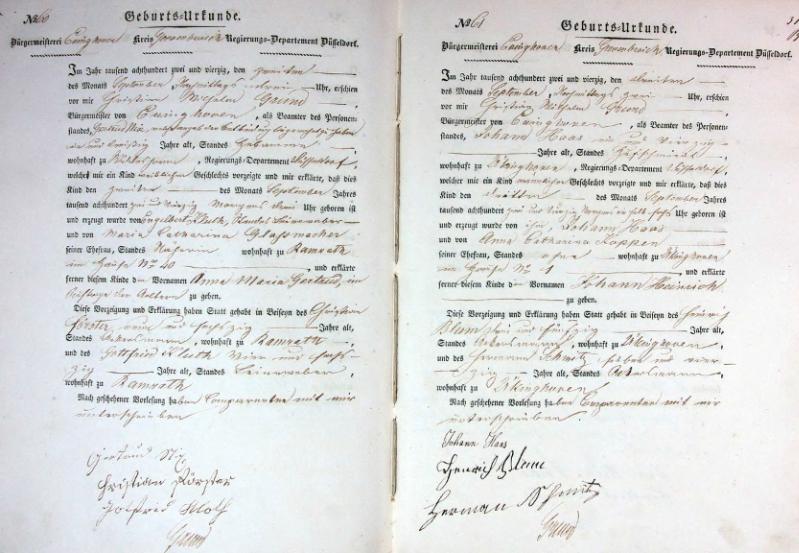 No 60
Geburts-Urkunde.
Bürgermeisterei Evinghoven Kreis Grevenbroich Regierungs-Departement Düsseldorf.
Im Jahr tausend achthundert zwei und vierzig, den zweiten
des Monats September, Nachmittags Uhr, erschien
vor mir Christian Wilhelm Grund
Bürgermeister von Evinghoven, als Beamter des Personen-
standes, Gertrud
und dreißig Jahre alt, Standes Hebamme
wohnhaft zu , Regierungs-Departement Düsseldorf,
welches mir ein Kind weiblichen Geschlechts vorzeigte und mir erklärte, daß dies
Kind den zweiten des Monats September Jahres
tausend achthundert zwei und vierzig Morgens Uhr geboren ist
und erzeugt wurde von
und von Maria Catharina Glasmacher
seiner Ehefrau, Standes wohnhaft zu Ramrath
im Hause No 40 und erklärte
ferner diesem Kinde den Vornamen Anna Maria Gertrud, im
zu geben.
Diese Vorzeigung und Erklärung haben Statt gehabt in Beiseyn des Christian
Förster, und sechszig Jahre alt,
Standes Ackersmann, wohnhaft zu Ramrath
und des Gottfried vier und sechs-
zig Jahre alt, Standes Leineweber,
wohnhaft zu Ramrath
Nach geschehener Vorlesung haben Comparenten mit mir
unterschrieben
Gertrud
Christian Förster
Gotfried
Grund
No 61
Geburts-Urkunde.
Bürgermeisterei Evinghoven Kreis Grevenbroich Regierungs-Departement Düsseldorf.
Im Jahr tausend achthundert zwei und vierzig, den dreiten
des Monats September, Nachmittags zwei Uhr, erschien
vor mir Christian Wilhelm Grund
Bürgermeister von Evinghoven, als Beamter des Personen-
standes, Johann Haas ein und vierzig
Jahre alt, Standes Hufschmied
wohnhaft zu , Regierungs-Departement Düsseldorf,
welcher mir ein Kind männlichen Geschlechts vorzeigte und mir erklärte, daß dies
Kind den dritten des Monats September Jahres
tausend achthundert zwei und vierzig Morgens halb sechs Uhr geboren ist
und erzeugt wurde von ihm, Johann Haas
und von Anna Catharina Koppen
seiner Ehefrau, Standes ohne wohnhaft zu
im Hause No 1 und erklärte
ferner diesem Kinde den Vornamen Johann Heinrich
zu geben.
Diese Vorzeigung und Erklärung haben Statt gehabt in Beiseyn des Heinrich
Blum und fünfzig Jahre alt,
Standes Ackersmann, wohnhaft zu
und des Hermann Schmitz sieben und vier-
zig Jahre alt, Standes Ackersmann,
wohnhaft zu
Nach geschehener Vorlesung haben Comparenten mit mir
unterschrieben.
Johann Haas
Henrich Blum
Herman Schmitz
Grund